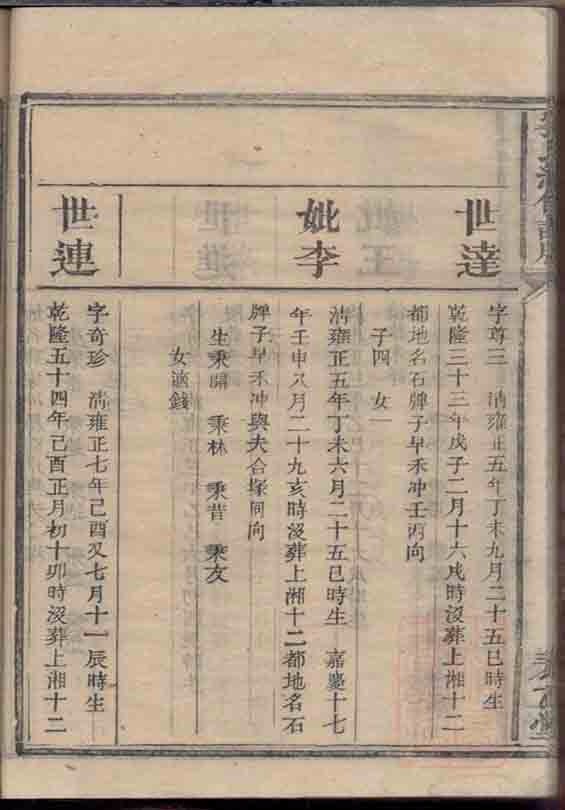 世達
字尊三 清雍正五年丁未九月二十五巳時生
乾隆三十三年戊子二月十六戌時沒葬上湘十二
都地名石牌子早禾冲壬丙向
子四 女一
妣李
清雍正五年丁未六月二十五巳時生 嘉慶十七
年壬申八月二十九亥時沒葬上湘十二都地名石
牌子早禾冲與夫合塚同向
生秉開 秉林 秉昔 秉友
女適錢
世連
字奇珍 清雍正七年己酉又七月十一辰時生
乾隆五十四年己酉正月初十卯時沒葬上湘十二